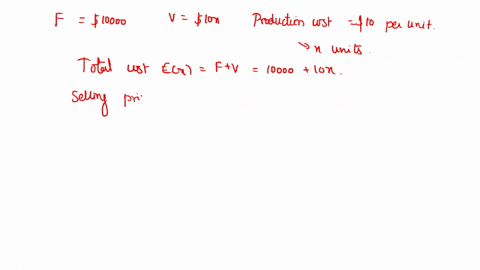 F = $10000 V = $10x Production cost = $10 per unit.
→ x units.
Total cost C(x) = F+V = 10000 + 10x.
Selling pri